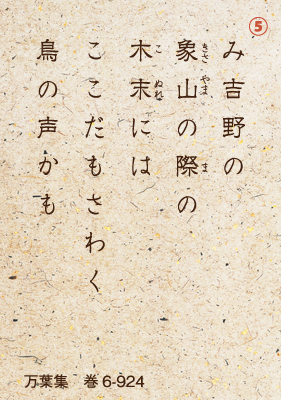 ⑤
み吉野の
象山の際の
きさ やま ま
木末には
こ ぬれ
ここだもさわく
鳥の声かも
万葉集 巻6-924